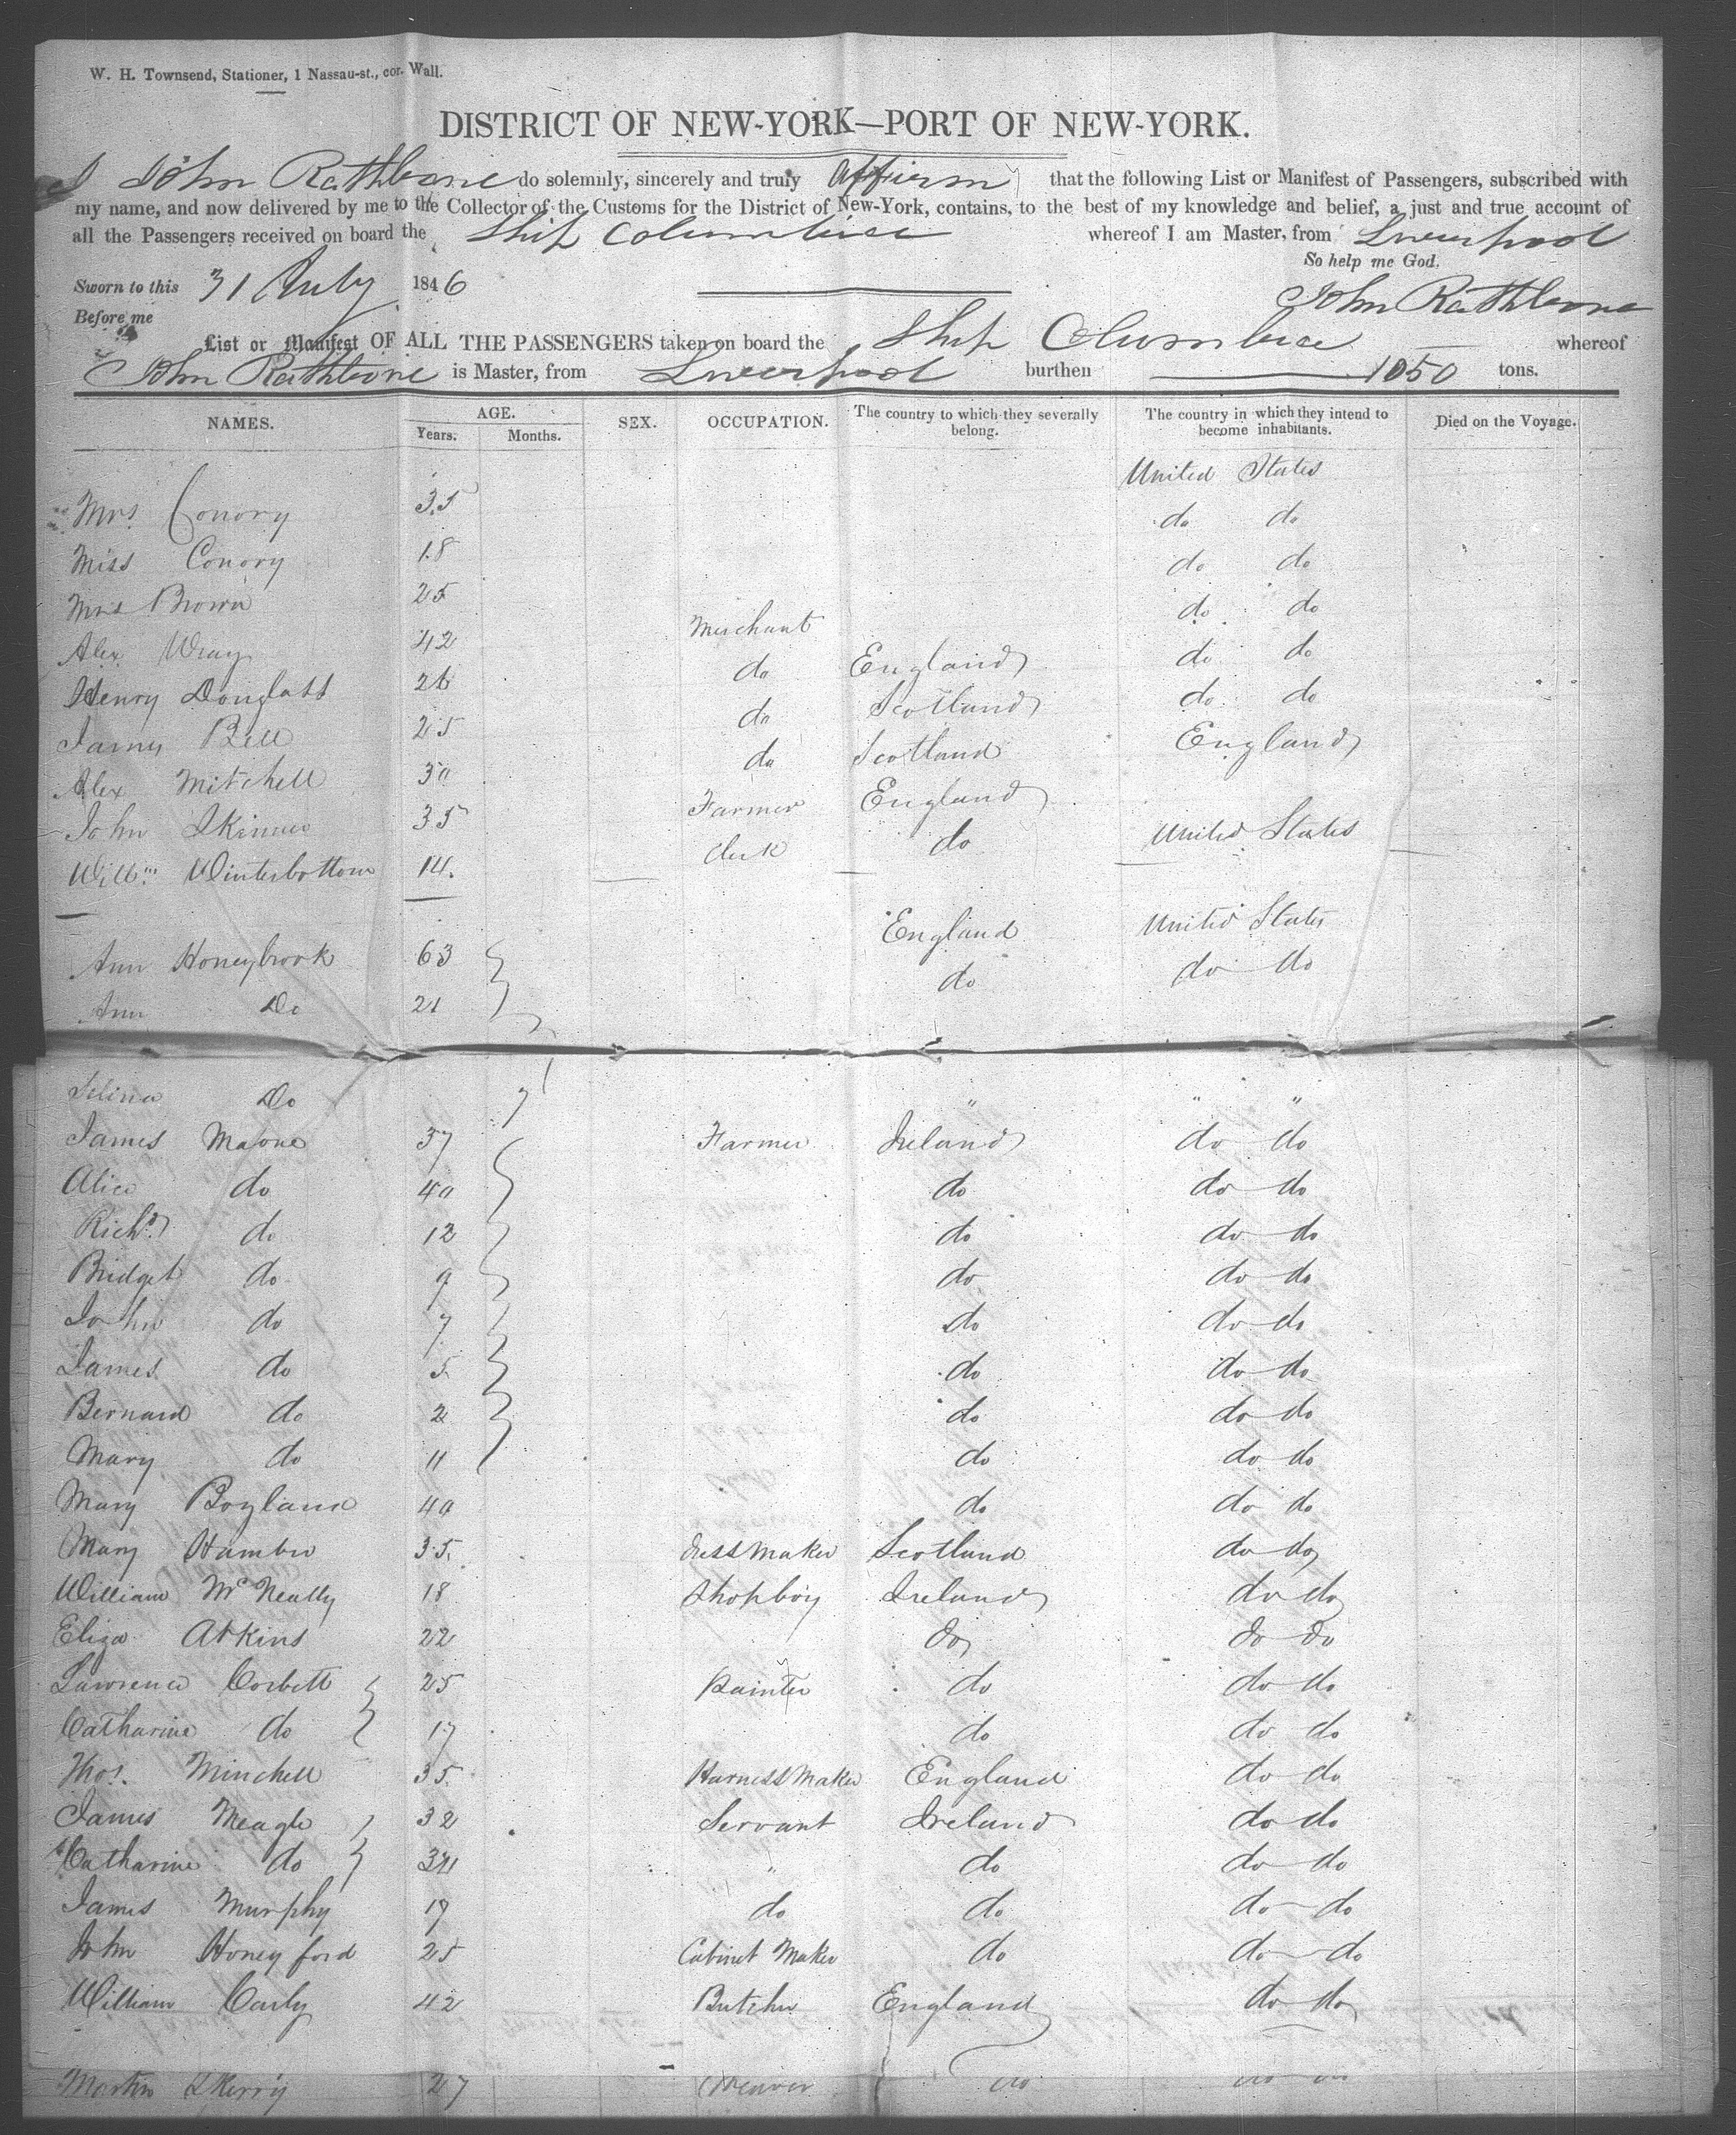 W. H. Townsend, Stationer, 1 Nassau-st., cor. Wall.
DISTRICT OF NEW-YORK—PORT OF NEW-YORK.
I John Rathbone do solemnly, sincerely and truly affirm that the following List or Manifest of Passengers, subscribed with
my name, and now delivered by me to the Collector of the Customs for the District of New-York, contains, to the best of my knowledge and belief, a just and true account of
all the Passengers received on board the Ship Columbia whereof I am Master, from Liverpool
So help me God.
Sworn to this 31 July 1846
John Rathbone
Before me
List or Manifest OF ALL THE PASSENGERS taken on board the Ship Columbia whereof
John Rathbone is Master, from Liverpool burthen 1050 tons.
NAMES. AGE. SEX. OCCUPATION. The country to which they severally belong. The country in which they intend to become inhabitants. Died on the Voyage.
Years. Months.
United States
Mrs Conory 35 do do
Miss Conory 18 do do
Mrs Brown 25 do do
Alex Wray 42 Merchant do do
Henry Douglass 26 do England do do
James Bell 25 do Scotland England
Alex Mitchell 30 do Scotland
John Skinner 35 Farmer England United States
Willm Winterbottom 14. Clerk do
Ann Honeybrook 63 England United States
Ann Do 21 do do do
Selina Do 7 " " "
James Malone 37 Farmer Ireland do do
Alice do 40 do do do
Richd do 12 do do do
Bridget do 9 do do do
John do 7 do do do
James do 5 do do do
Bernard do 2 do do do
Mary do 11 do do do
Mary Boyland 40 do do do
Mary 35 dressmaker Scotland do do
William McNeally 18 Shopboy Ireland do do
Eliza Atkins 22 do do do
Lawrence Corbett 25 Painter do do do
Catharine do 17 do do do
Thos. Minchell 35 Harness Maker England do do
James Meagle 32 Servant Ireland do do
Catharine do " do do do
James Murphy 19 do do do do
John Honeyford 25 Cabinet Maker do do do
William 42 Butcher England do do
Martin Skerry 27 Weaver do do do